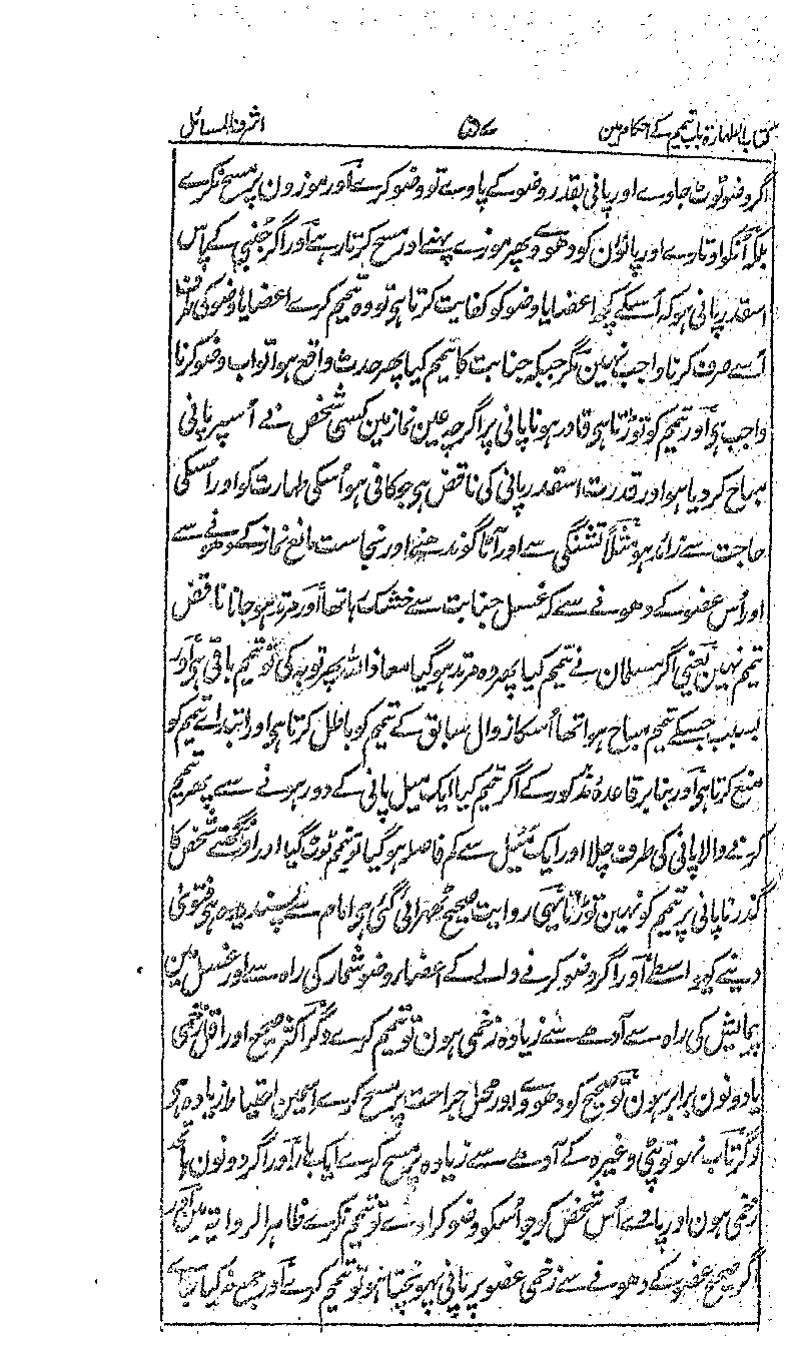 کتاب الطہارۃ باب تیمم کے احکام مین
۵۷
اشرف المسائل
اگر وضو ٹوٹ جاوے اور پانی بقدر وضو کے پاوے تو وضو کرے اور موزون پر مسح نکرے
بلکہ اُنکو اوتارے اور پانون کو دھووے پھر موزے پہنے اور مسح کرتا رہے اور اگر جنبی کے پاس
اسقدر پانی ہو کہ اُسکے کچھ اعضا یا وضو کو کفایت کرتا ہی تو وہ تیمم کرے اعضا یا وضو کی طرف
اُسے صرف کرنا واجب نہین مگر جبکہ جنابت کا تیمم کیا پھر حدث واقع ہوا تو اب وضو کرنا
واجب ہی اور تیمم کو توڑتا ہی قادر ہونا پانی پر اگرچہ عین نماز مین کسی شخص نے اُسپر پانی
مباح کر دیا ہو اور قدرت اسقدر پانی کی ناقض ہی جو کافی ہو اُسکی طہارت کو اور اُسکی
حاجت سے زائد ہو مثلاً تشنگی سے اور آٹا گوندھنے اور نجاست مانع نماز کے دھونے سے
اور اُس عضو کے دھونے سے کہ غسل جنابت سے خشک رہا تھا اور مرتد ہو جانا ناقض
تیمم نہین یعنی اگر مسلمان نے تیمم کیا پھر وہ مرتد ہو گیا معاذ اللہ پھر توبہ کی تو تیمم باقی ہی اور
بسبب جسکے تیمم مباح ہوا تھا اُسکا زوال سابق کے تیمم کو باطل کرتا ہی اور ابتداے تیمم کو
منع کرتا ہی اور بنابر قاعدۂ مذکور کے اگر تیمم کیا ایک میل پانی کے دور ہونے سے پھر تیمم
کرنے والا پانی کی طرف چلا اور ایک میل سے کم فاصلہ ہو گیا تو تیمم ٹوٹ گیا اور اونگھتے شخص کا
گذرنا پانی پر تیمم کو نہین توڑتا یہی روایت صحیح ٹھہرائی گئی ہی امام سے پسندیدہ ہی فتویٰ
دینے کیواسطے اور اگر وضو کرنے والے کے اعضاء وضو شمار کی راہ سے اور غسل مین
پیمایش کی راہ سے آدھے سے زیادہ زخمی ہون تو تیمم کرے وگر اکثر صحیح اور اقل زخمی
یا دونون برابر ہون تو صحیح کو دھووے اور محل جراحت پر مسح کرے اسمین احتیاط زیادہ ہی
وگر تاب نہو تو پٹی وغیرہ کے آدھے سے زیادہ پر مسح کرے ایک بار اور اگر دونون ہاتھ
زخمی ہون اور پاوے اُس شخص کو جو اُسکو وضو کراوے تو تیمم نکرے ظاہر الروایۃ مین اور
اگر صحیح عضو کے دھونے سے زخمی عضو پر پانی پہونچتا ہو تو تیمم کرے اور جمع نہ کیا جاے